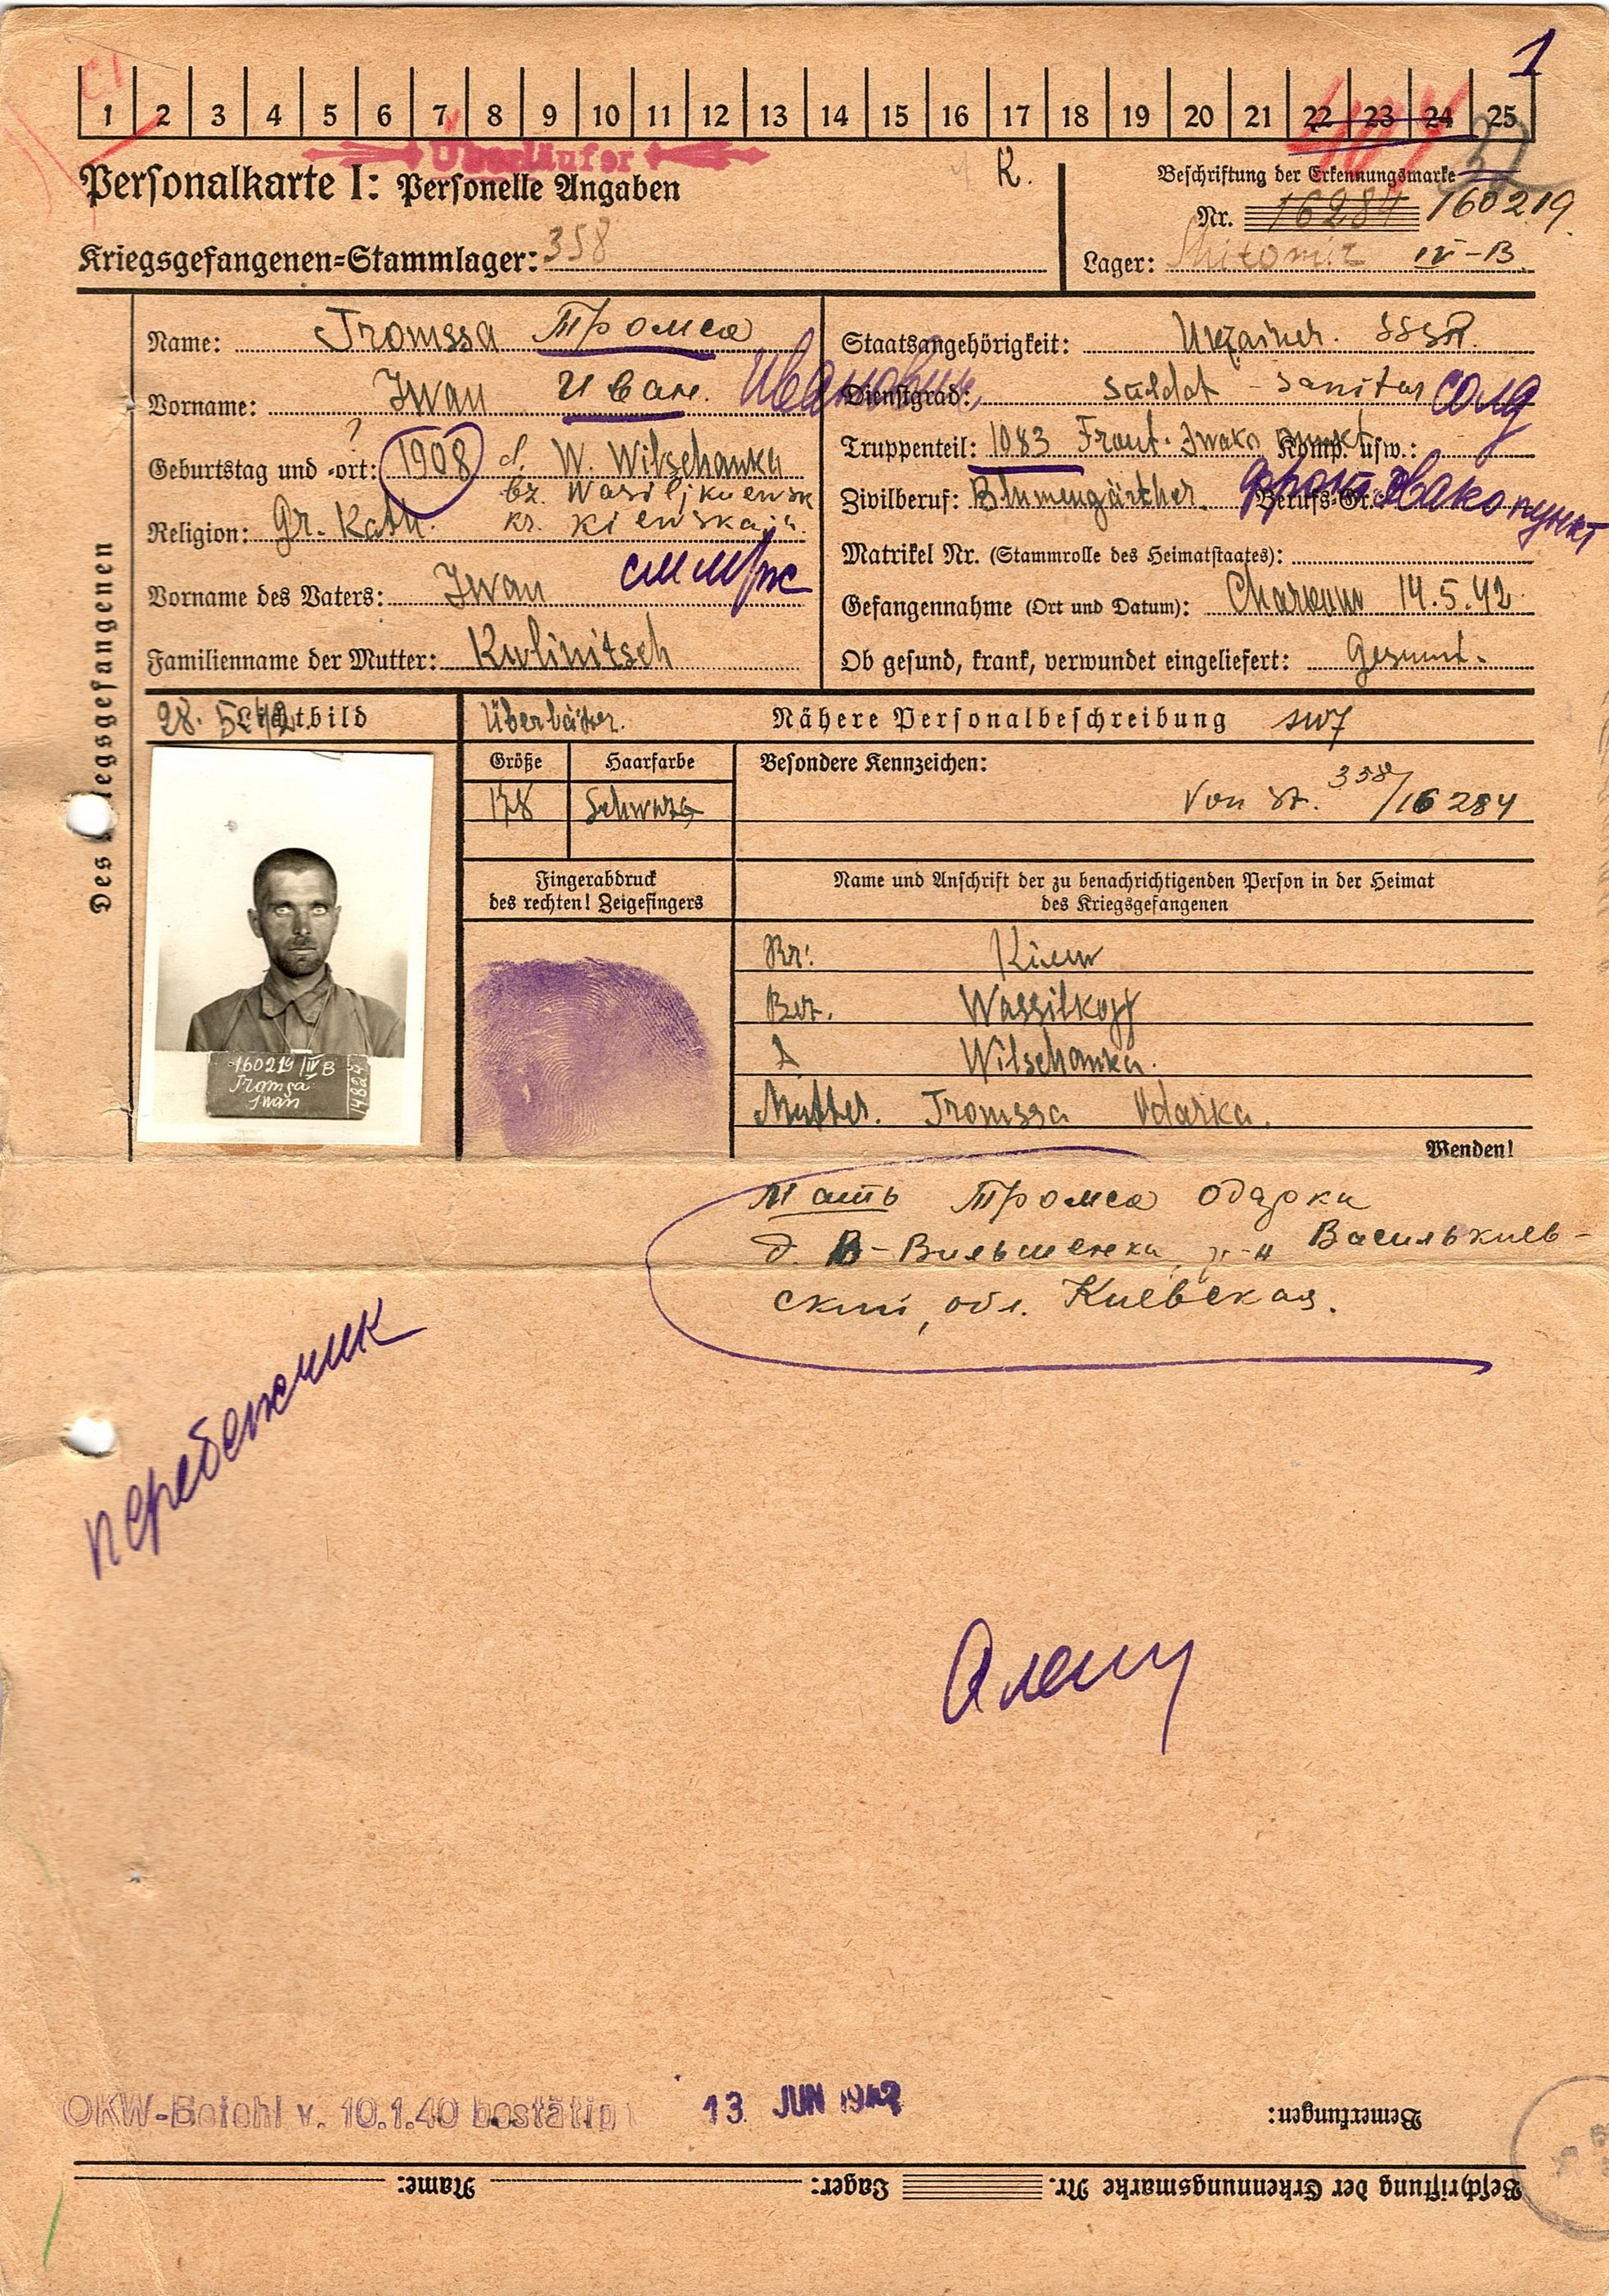 1
1 2 3 4 5 6 7 8 9 10 11 12 13 14 15 16 17 18 19 20 21 22 23 24 25
Überläufer
Personalkarte I: Personelle Angaben
K.
Beschriftung der Erkennungsmarke
Nr. 16284 160219
Kriegsgefangenen-Stammlager: 358
Lager: Shitomir IV-B
Des Kriegsgefangenen
Name: Tromssa Тромса
Vorname: Iwan Иван. Иванович
Geburtstag und -ort: 1908 d. W. Wilschanka
bz. Wasiljkuewsk
Religion: Gr. Kath. kr. Kiewskaja
Vorname des Vaters: Iwan
Familienname der Mutter: Kulinitsch
Staatsangehörigkeit: Ukrainer. SSSR.
Dienstgrad: Soldat - Sanitar солд
Truppenteil: 1083 Front. Iwako punkt Komp. usw.:
Zivilberuf: Blumengärtner. Berufs-Gr.: фронт Эвакопункт
Matrikel Nr. (Stammrolle des Heimatstaates):
Gefangennahme (Ort und Datum): Charkow 14.5.42
Ob gesund, krank, verwundet eingeliefert: Gesund.
28. 5. 42 Lichtbild
Nähere Personalbeschreibung
Größe Haarfarbe Besondere Kennzeichen:
178 Schwarz Von St. 358/16 284
Fingerabdruck
des rechten! Zeigefingers
Name und Anschrift der zu benachrichtigenden Person in der Heimat
des Kriegsgefangenen
Kr: Kiew
Bez. Wassilkoff
D Wilschanka.
Mutter. Tromssa Odarka.
160219 IV B
Tromsa
Iwan
14824
Wenden!
Мать Тромса Одарка
д. В-Вильшенка, р-н Василькиев-
ский, обл. Киевская.
перебежчик
OKW-Befehl v. 10.1.40 bestätigt 13. JUN 1942
Bemerkungen:
Beschriftung der Erkennungsmarke Nr. Lager: Name: